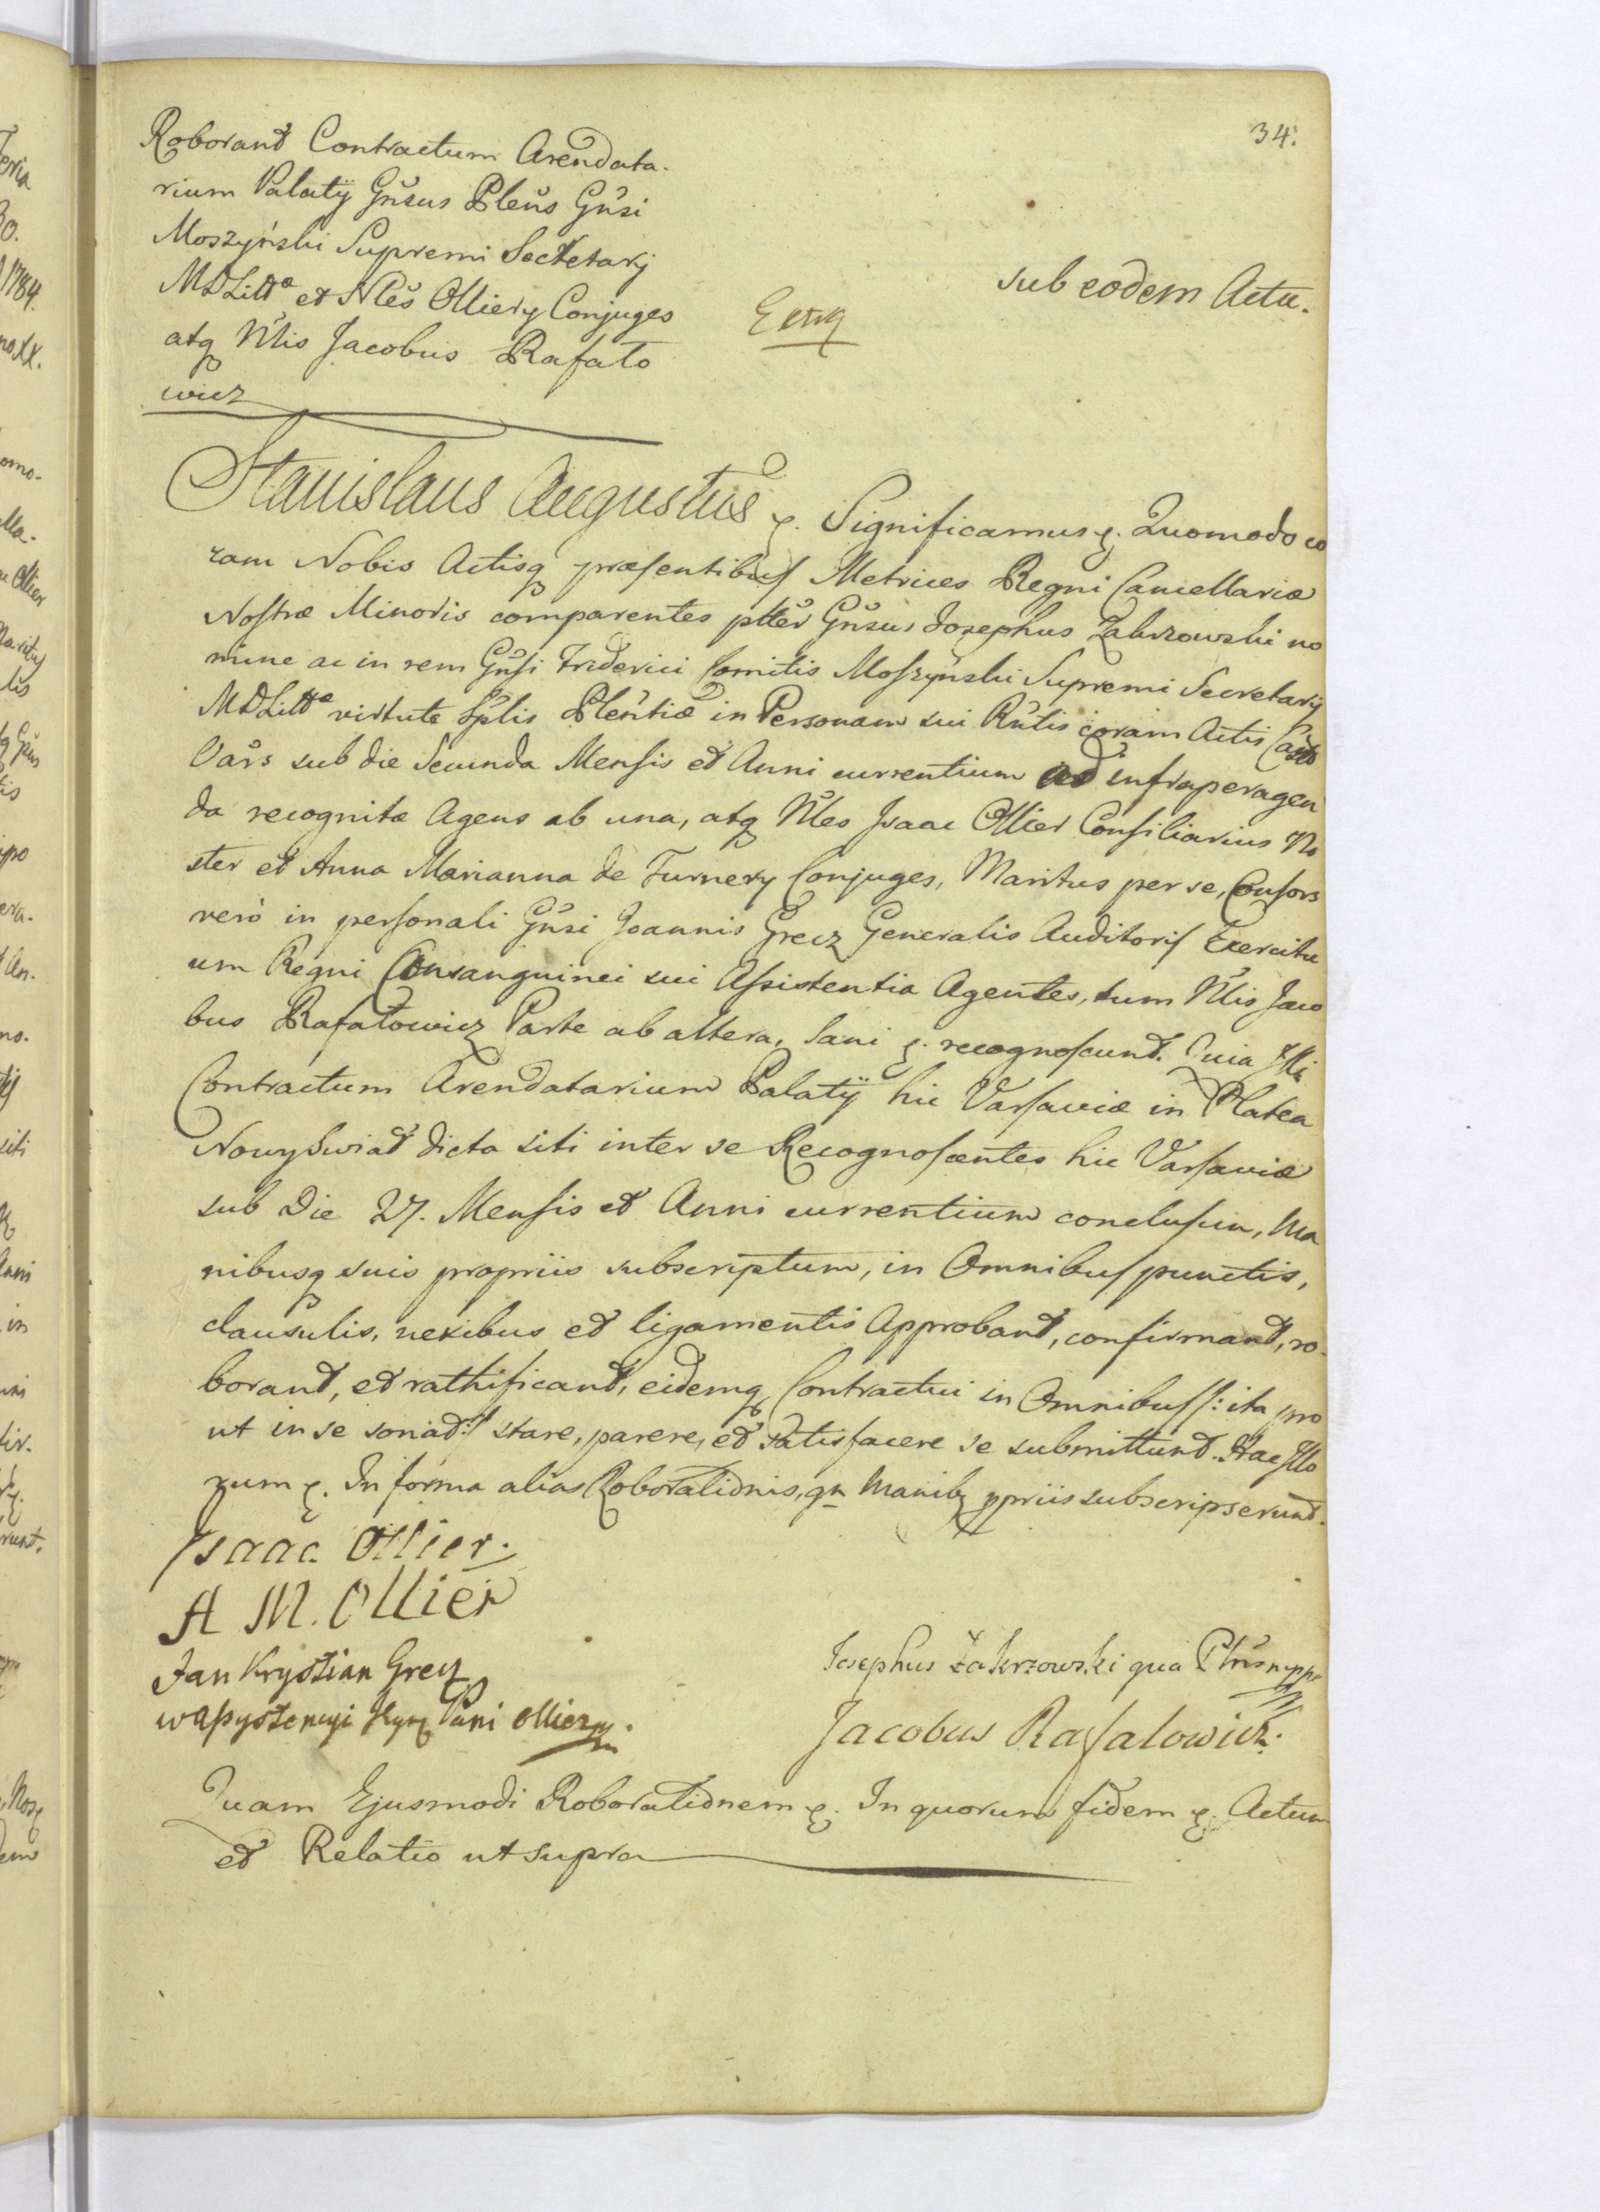 34.
Roborant Contractum Arendata-
rium Palatÿ Gñsus Pleñs Gñsi
Moszyński Supremi Secretarij
MDLittæ et Nles Olliery Conjuges
atq Nlis Jacobus Rafało
wicz
sub eodem Actu.
Stanislaus Augustus ę. Significamus ę. Quomodo co
ram Nobis Actisq præsentibus Metrices Regni Cancellariæ
Nostræ Minoris comparentes pltter Gñsus Josephus Zakrzowski no
mine ac in rem Gñsi Friderici Comitis Moszyński Supremi Secretarij
MDLittæ virtute Splis Plentiæ in Personam sui Rntis coram Actis Castr
Vars sub die Secunda Mensis et Anni currentium ad infraperagen
da recognitæ Agens ab una, atq Nles Isaac Ollier Consiliarius No
ster et Anna Marianna de Turnery Conjuges, Maritus per se, Consors
verò in personali Gñsi Joannis Grecz Generalis Auditoris Exercitu
um Regni Consanguinei sui Assistentia Agentes, tum Nlis Jaco
bus Rafałowicz Parte ab altera, Sani ę. recognoscunt. Quia Illi
Contractum Arendatarium Palatÿ hic Varsaviæ in Platea
Nowy Swiat dicta siti inter se Recognoscentes hic Varsaviæ
sub Die 27. Mensis et Anni currentium conclusum, Ma
nibusq suis propriis subscriptum, in Omnibus punctis,
clausulis, nexibus et ligamentis Approbant, confirmant, ro-
borant, et rathificant, eidemq Contractui in Omnibus /: ita pro
ut in se sonat :/ stare, parere, et satisfacere se submittunt. Hac Illo
rum ę. In forma alias Roborationis, qn Manib ppriis subscripserunt.
Isaac Ollier.
A M. Ollier
Jan Krystian Grecz
w assystencyi Pani Olliery.
Josephus Zakrzowski qua Pltrius mppr
Jacobus Rafalowicz.
Quam Ejusmodi Roborationem ę. In quorum fidem ę. Actum
et Relatio ut supra